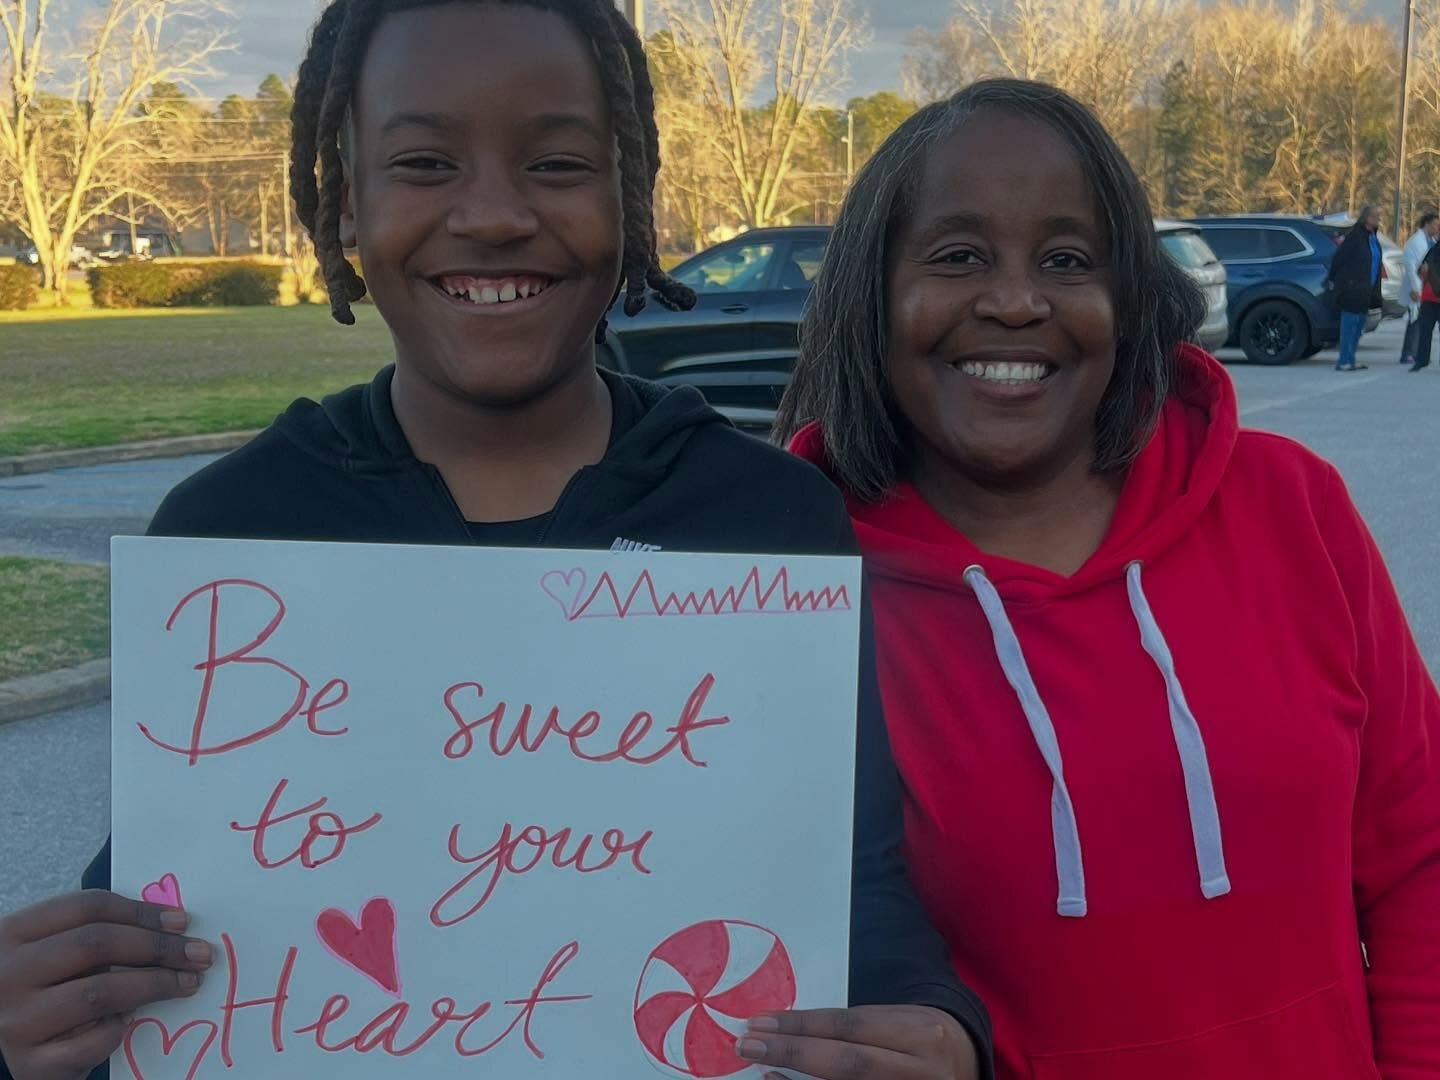 NIKE
Be sweet
to your
Heart